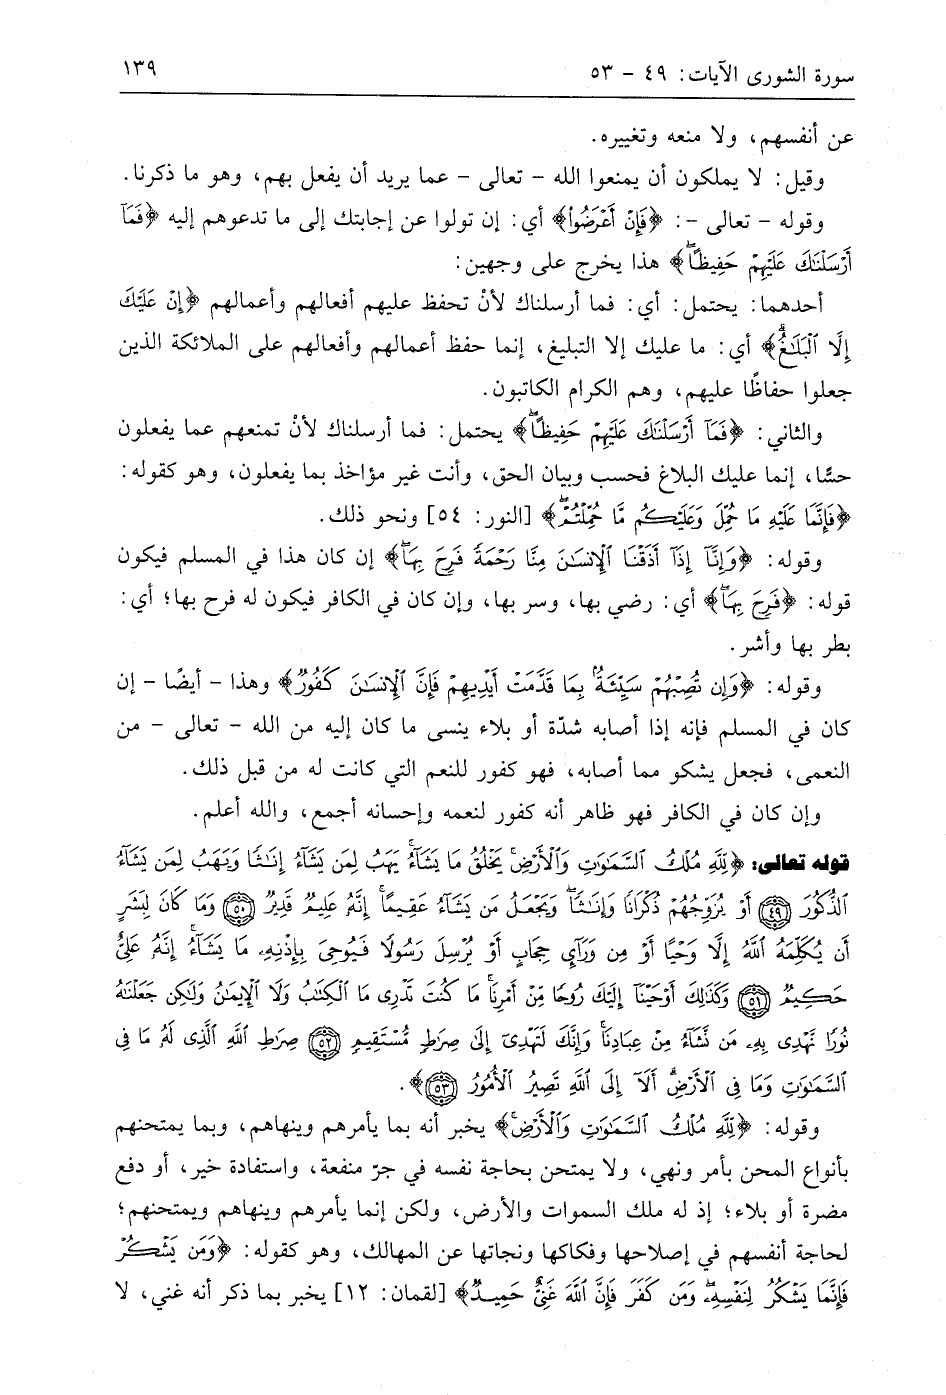 سورة الشورى الآيات: ٤٩ - ٥٣
١٣٩
عن أنفسهم، ولا منعه وتغييره.
وقيل: لا يملكون أن يمنعوا الله - تعالى - عما يريد أن يفعل بهم، وهو ما ذكرنا.
وقوله - تعالى -: ﴿فَإِنْ أَعْرَضُوا۟﴾ أي: إن تولوا عن إجابتك إلى ما تدعوهم إليه ﴿فَمَآ
أَرْسَلْنَٰكَ عَلَيْهِمْ حَفِيظًاۖ﴾ هذا يخرج على وجهين:
أحدهما: يحتمل: أي: فما أرسلناك لأنْ تحفظ عليهم أفعالهم وأعمالهم ﴿إِنْ عَلَيْكَ
إِلَّا ٱلْبَلَٰغُۗ﴾ أي: ما عليك إلا التبليغ، إنما حفظ أعمالهم وأفعالهم على الملائكة الذين
جعلوا حفاظًا عليهم، وهم الكرام الكاتبون.
والثاني: ﴿فَمَآ أَرْسَلْنَٰكَ عَلَيْهِمْ حَفِيظًاۖ﴾ يحتمل: فما أرسلناك لأنْ تمنعهم عما يفعلون
حسًّا، إنما عليك البلاغ فحسب وبيان الحق، وأنت غير مؤاخذ بما يفعلون، وهو كقوله:
﴿فَإِنَّمَا عَلَيْهِ مَا حُمِّلَ وَعَلَيْكُم مَّا حُمِّلْتُمْۖ﴾ [النور: ٥٤] ونحو ذلك.
وقوله: ﴿وَإِنَّآ إِذَآ أَذَقْنَا ٱلْإِنسَٰنَ مِنَّا رَحْمَةً فَرِحَ بِهَاۖ﴾ إن كان هذا في المسلم فيكون
قوله: ﴿فَرِحَ بِهَاۖ﴾ أي: رضي بها، وسر بها، وإن كان في الكافر فيكون له فرح بها؛ أي:
بطر بها وأشر.
وقوله: ﴿وَإِن تُصِبْهُمْ سَيِّئَةٌۢ بِمَا قَدَّمَتْ أَيْدِيهِمْ فَإِنَّ ٱلْإِنسَٰنَ كَفُورٌ﴾ وهذا - أيضًا - إن
كان في المسلم فإنه إذا أصابه شدّة أو بلاء ينسى ما كان إليه من الله - تعالى - من
النعمى، فجعل يشكو مما أصابه، فهو كفور للنعم التي كانت له من قبل ذلك.
وإن كان في الكافر فهو ظاهر أنه كفور لنعمه وإحسانه أجمع، والله أعلم.
قوله تعالى: ﴿لِّلَّهِ مُلْكُ ٱلسَّمَٰوَٰتِ وَٱلْأَرْضِۚ يَخْلُقُ مَا يَشَآءُۚ يَهَبُ لِمَن يَشَآءُ إِنَٰثًا وَيَهَبُ لِمَن يَشَآءُ
ٱلذُّكُورَ ﴿٤٩﴾ أَوْ يُزَوِّجُهُمْ ذُكْرَانًا وَإِنَٰثًاۖ وَيَجْعَلُ مَن يَشَآءُ عَقِيمًاۚ إِنَّهُۥ عَلِيمٌ قَدِيرٌ ﴿٥٠﴾ وَمَا كَانَ لِبَشَرٍ
أَن يُكَلِّمَهُ ٱللَّهُ إِلَّا وَحْيًا أَوْ مِن وَرَآئِ حِجَابٍ أَوْ يُرْسِلَ رَسُولًا فَيُوحِىَ بِإِذْنِهِۦ مَا يَشَآءُۚ إِنَّهُۥ عَلِىٌّ
حَكِيمٌ ﴿٥١﴾ وَكَذَٰلِكَ أَوْحَيْنَآ إِلَيْكَ رُوحًا مِّنْ أَمْرِنَاۚ مَا كُنتَ تَدْرِى مَا ٱلْكِتَٰبُ وَلَا ٱلْإِيمَٰنُ وَلَٰكِن جَعَلْنَٰهُ
نُورًا نَّهْدِى بِهِۦ مَن نَّشَآءُ مِنْ عِبَادِنَاۚ وَإِنَّكَ لَتَهْدِىٓ إِلَىٰ صِرَٰطٍ مُّسْتَقِيمٍ ﴿٥٢﴾ صِرَٰطِ ٱللَّهِ ٱلَّذِى لَهُۥ مَا فِى
ٱلسَّمَٰوَٰتِ وَمَا فِى ٱلْأَرْضِۗ أَلَآ إِلَى ٱللَّهِ تَصِيرُ ٱلْأُمُورُ ﴿٥٣﴾﴾.
وقوله: ﴿لِّلَّهِ مُلْكُ ٱلسَّمَٰوَٰتِ وَٱلْأَرْضِۚ﴾ يخبر أنه بما يأمرهم وينهاهم، وبما يمتحنهم
بأنواع المحن بأمر ونهي، ولا يمتحن بحاجة نفسه في جرّ منفعة، واستفادة خير، أو دفع
مضرة أو بلاء؛ إذ له ملك السموات والأرض، ولكن إنما يأمرهم وينهاهم ويمتحنهم؛
لحاجة أنفسهم في إصلاحها وفكاكها ونجاتها عن المهالك، وهو كقوله: ﴿وَمَن يَشْكُرْ
فَإِنَّمَا يَشْكُرُ لِنَفْسِهِۦۖ وَمَن كَفَرَ فَإِنَّ ٱللَّهَ غَنِىٌّ حَمِيدٌ﴾ [لقمان: ١٢] يخبر بما ذكر أنه غني، لا